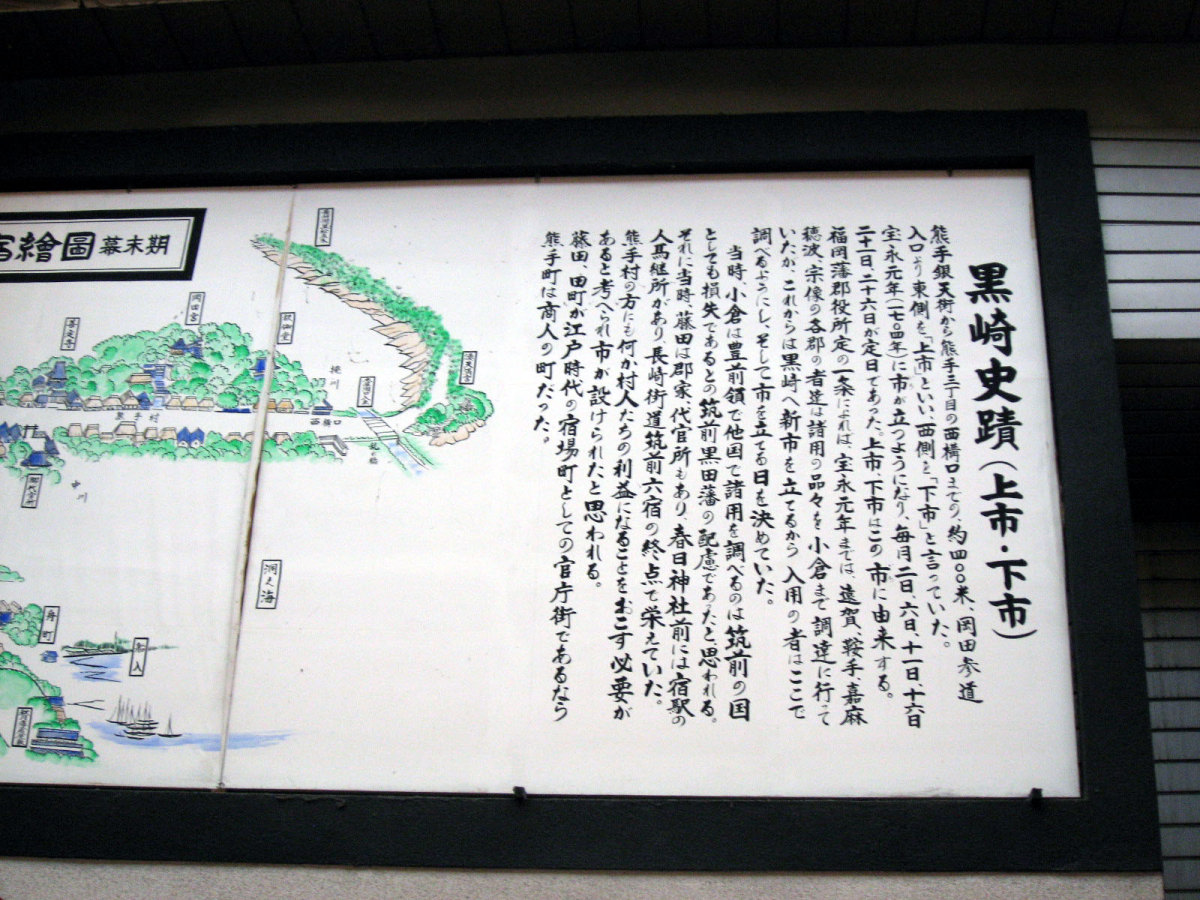 黒崎史蹟(上市・下市)
熊手銀天街から熊手三丁目の西構口までの、約四〇〇米、岡田参道
入口より東側を「上市」といい、西側を「下市」と言っていた。
宝永元年(一七〇四年)に市が立つようになり、毎月二日、六日、十一日、十六日
二十一日、二十六日が定日であった。上市、下市はこの市に由来する。
福岡藩郡役所定の一条によれば、宝永元年までは、遠賀、鞍手、嘉麻
穂波、宗像の各郡の者達は諸用の品々を小倉まで調達に行って
いたが、これからは黒崎へ新市を立てるから入用の者はここで
調べるようにし、そして市を立てる日を決めていた。
当時、小倉は豊前領で他国で諸用を調べるのは筑前の国
としても損失であるとの筑前黒田藩の配慮であったと思われる。
それに当時、藤田は郡家、代官所もあり、春日神社前には宿駅の
人馬継所があり、長崎街道筑前六宿の終点で栄えていた。
熊手村の方にも何か村人たちの利益になることをおこす必要が
あると考へられ市が設けられたと思われる。
藤田、田町が江戸時代の宿場町としての官庁街であるなら
熊手町は商人の町だった。
幕末期
宿繪圖
岡田宮
善定寺
桃川
西構口
熊手村
乱の橋
御代官所
中川
洞之海
舟町